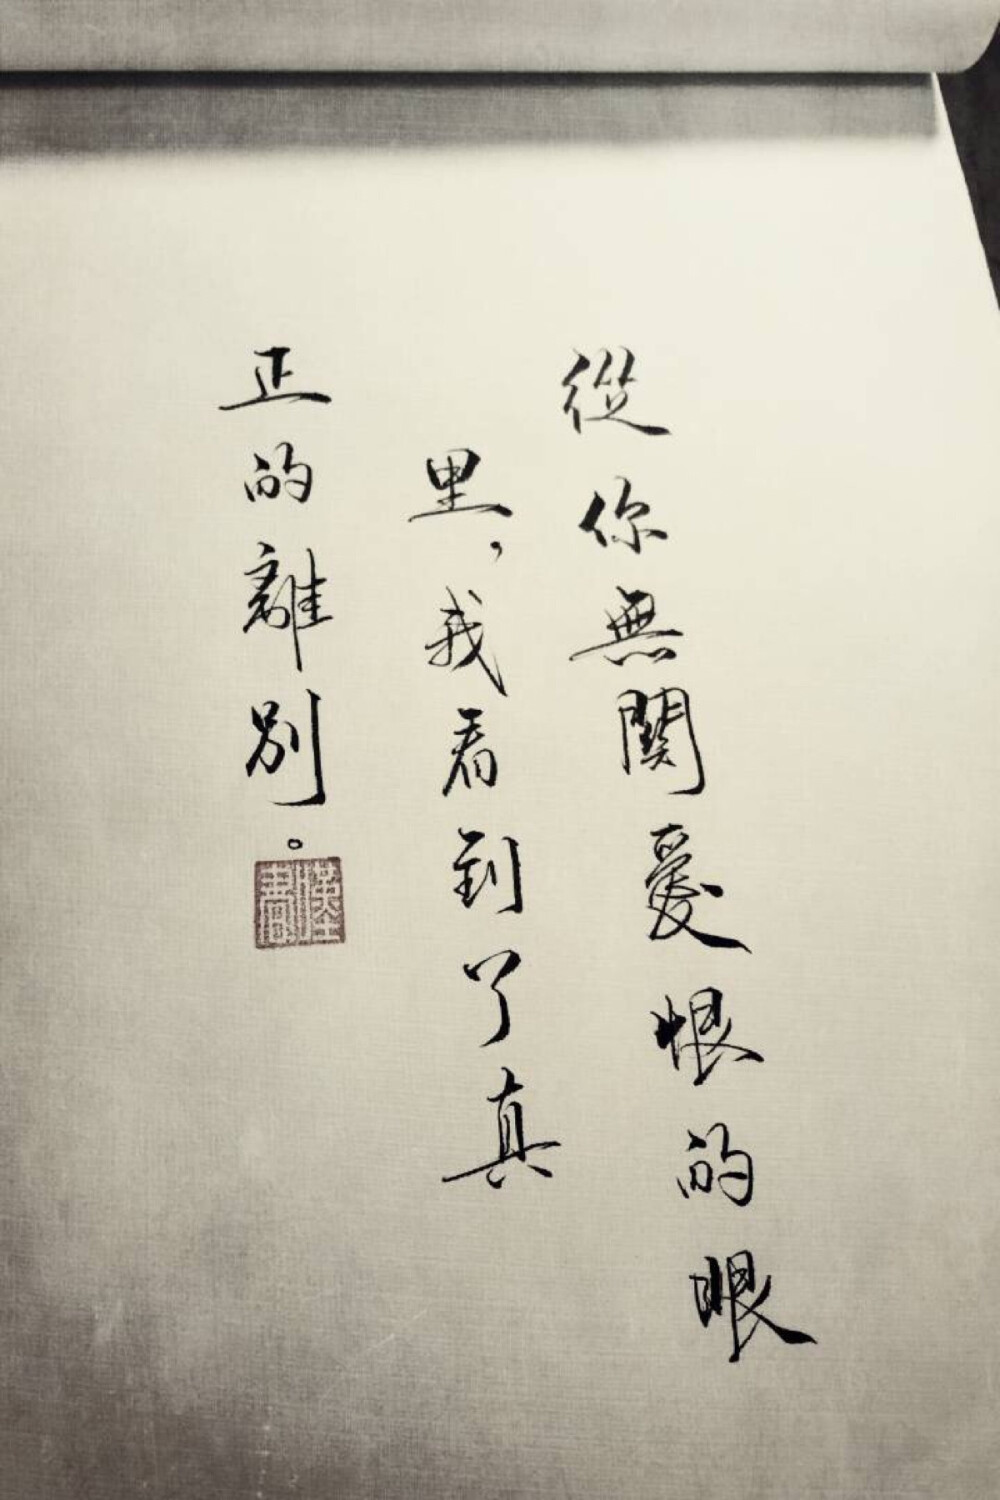 從你無關愛恨的眼
里，我看到了真
正的離別。